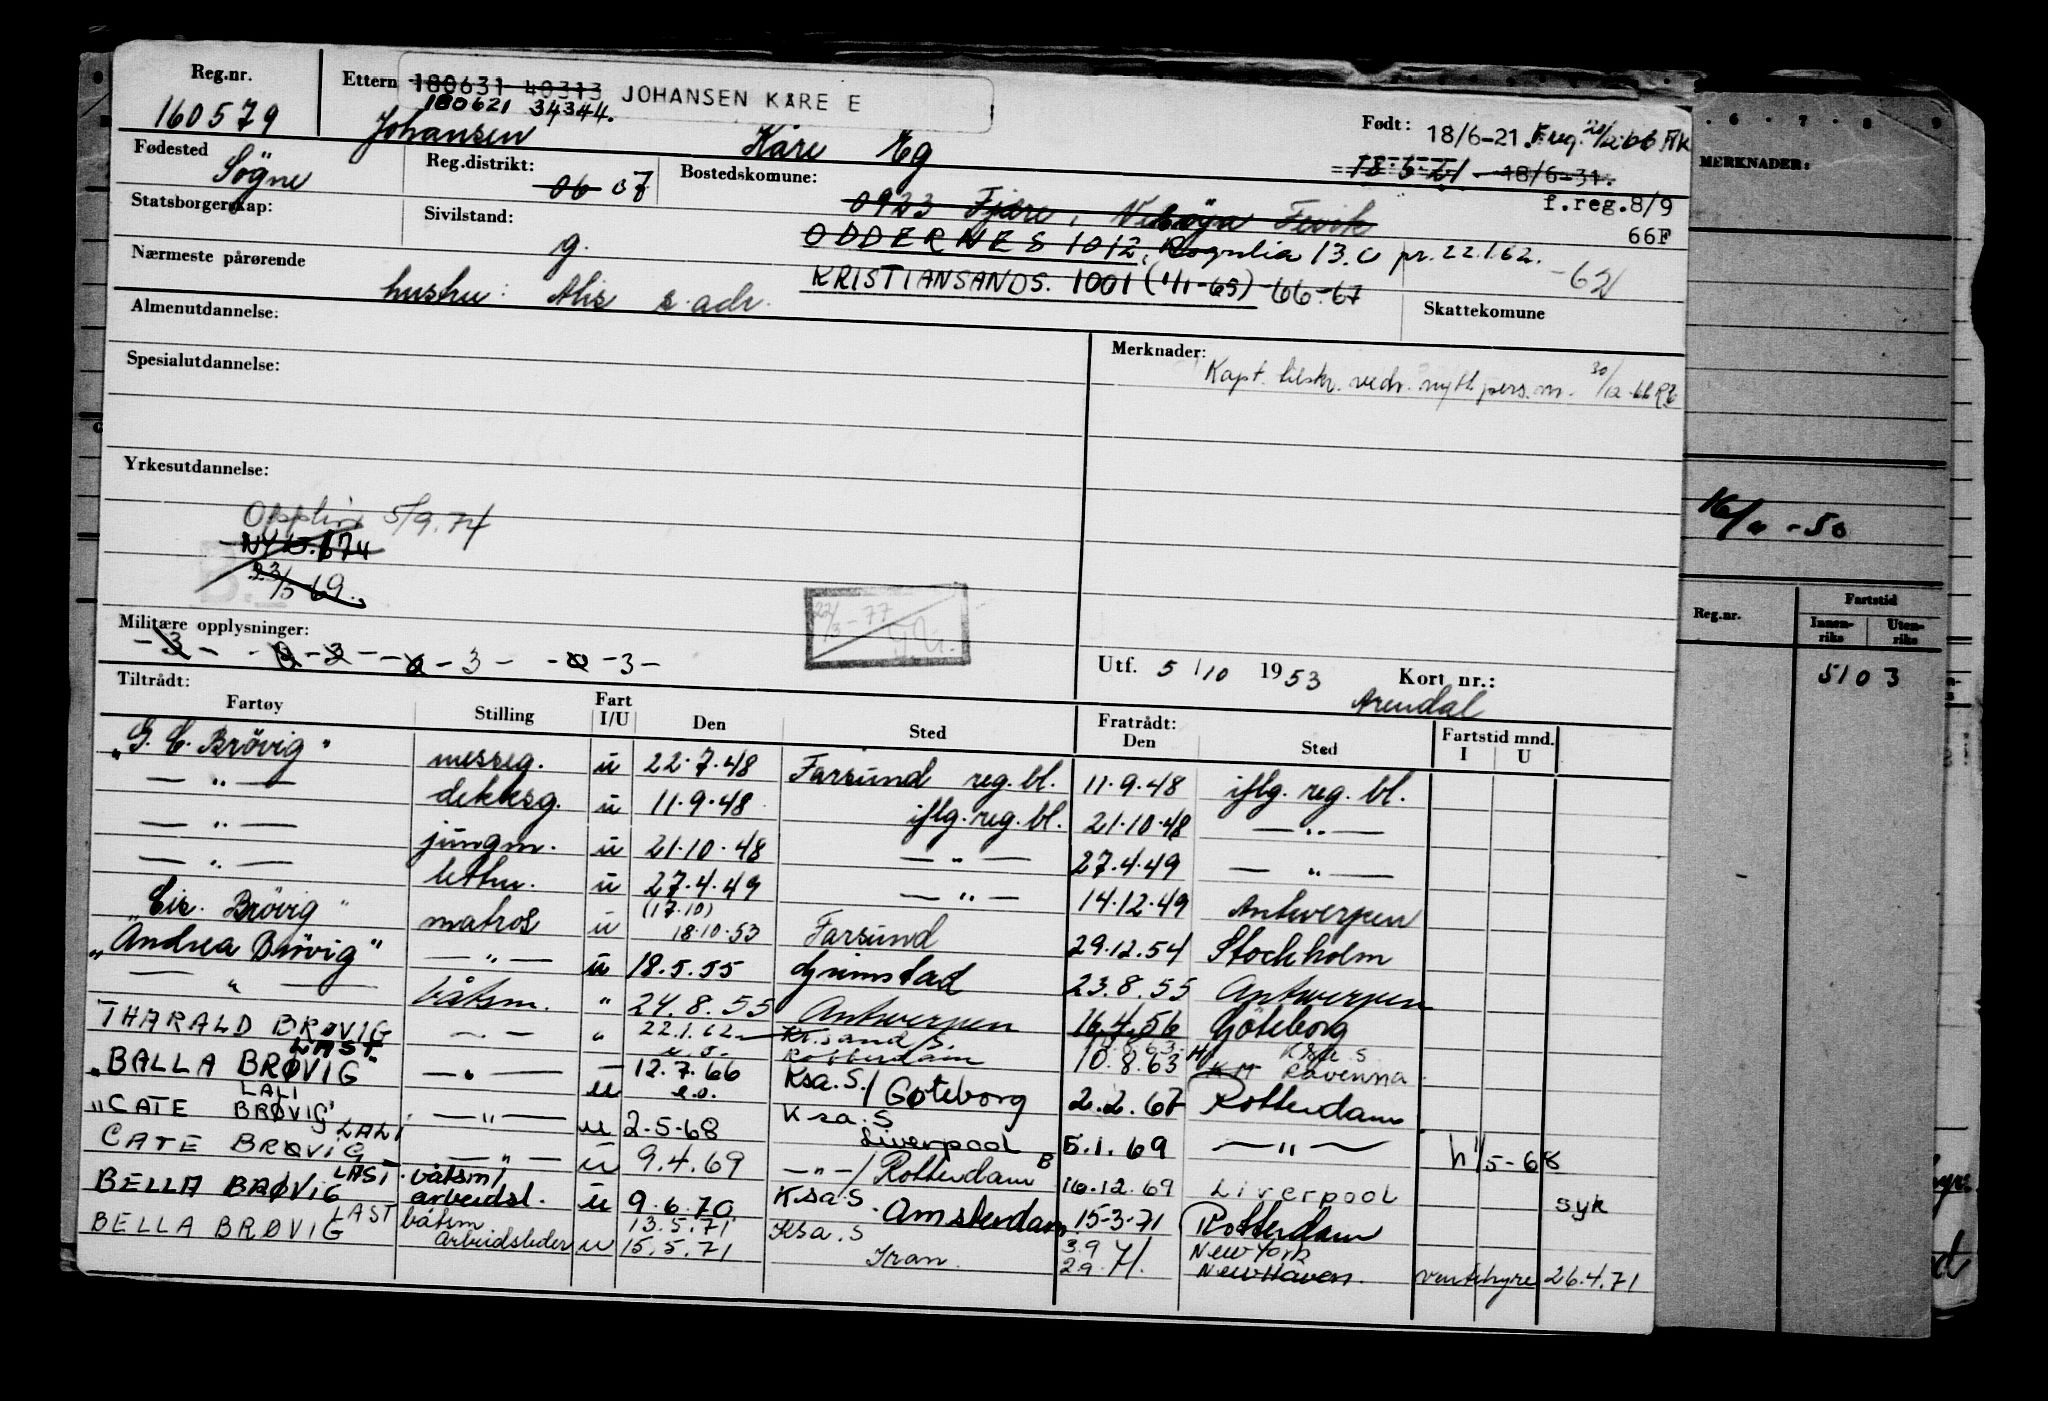 Reg.nr. Ettern 180631 40313 JOHANSEN KÅRE E
160579 180621 34344.
Johansen Kåre Eg Født: 18/6-21. F.reg.
18/6-31.
Fødested Søgne Reg.distrikt: 06 07 Bostedskomune: f.reg.8/9
0923 Fjære, Fevik 66F
Statsborgerskap: Sivilstand: g.
ODDERNES 1012, 13.C pr. 22.1.62. -62
Nærmeste pårørende hustru: Alis s. adr. KRISTIANSAND S. 1001 (1/1-65) -66-67
Almenutdannelse: Skattekomune
Spesialutdannelse: Merknader:
Kapt. tilskr. vedr. nytt pers.nr.
Yrkesutdannelse:
5/9.74
23/5 69.
22/3-77
Militære opplysninger:
-3- -3- -3-
Utf. 5/10 1953 Kort nr.:
Arendal
Tiltrådt: Fratrådt: Fartstid mnd.
Fartøy Stilling Fart I/U Den Sted Den Sted I U
"G. C. Brøvig" messeg. u 22.7.48 Farsund reg. bl. 11.9.48 iflg. reg. bl.
— " — dekksg. u 11.9.48 iflg. reg. bl. 21.10.48 — " —
— " — jungm. u 21.10.48 — " — 27.4.49 — " —
— " — lettm. u 27.4.49 — " — 14.12.49 Antwerpen
"Cis. Brøvig" matros u (17.10) 18.10.53 Farsund 29.12.54 Stockholm
"Andrea Brøvig" — " — u 18.5.55 Grimstad 23.8.55 Antwerpen
— " — båtsm. " 24.8.55 Antwerpen 16.4.56 Göteborg
THARALD BRØVIG — " — " 22.1.62 Kr.sand S. Rotterdam 10.8.63 Ravenna
LAST
"BALLA BRØVIG" — " — u 12.7.66 Ksa.S./Gøteborg 2.2.67 Rotterdam
LALI
"CATE BRØVIG" — " — u 2-5-68 Ksa.S Liverpool 5.1.69 — " — h 1/5-68
LALI
CATE BRØVIG — " — u 9.4.69 — " —/Rotterdam 16.12.69 Liverpool syk
LAST
BELLA BRØVIG båtsm/ arbeidsl. u 9.6.70 Ksa.S. Amsterdam 15-3-71 Rotterdam
LAST
BELLA BRØVIG båtsm arbeidsleder u 13.5.71 15.5.71 Ksa.S Iran. 3.9 2.9.71. New York New Haven. ventehyre 26.4.71
6 7 8 9
MERKNADER:
Reg.nr. Fartstid
Innenriks Utenriks
51 03